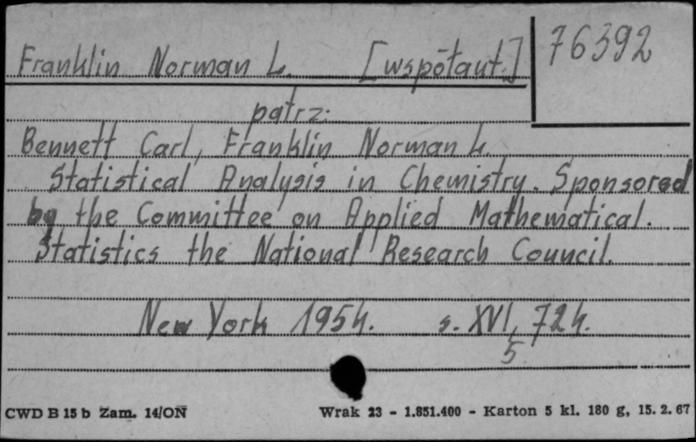 Franklin Norman L. [współaut.]
76392
patrz:
Bennett Carl, Franklin Norman L.
Statistical Analysis in Chemistry. Sponsored
by the Committee on Applied Mathematical.
Statistics the National Research Council.
New York 1954. s. XVI, 724.
5
CWD B 15 b Zam. 14/ON Wrak 23 - 1.851.400 - Karton 5 kl. 180 g, 15. 2. 67